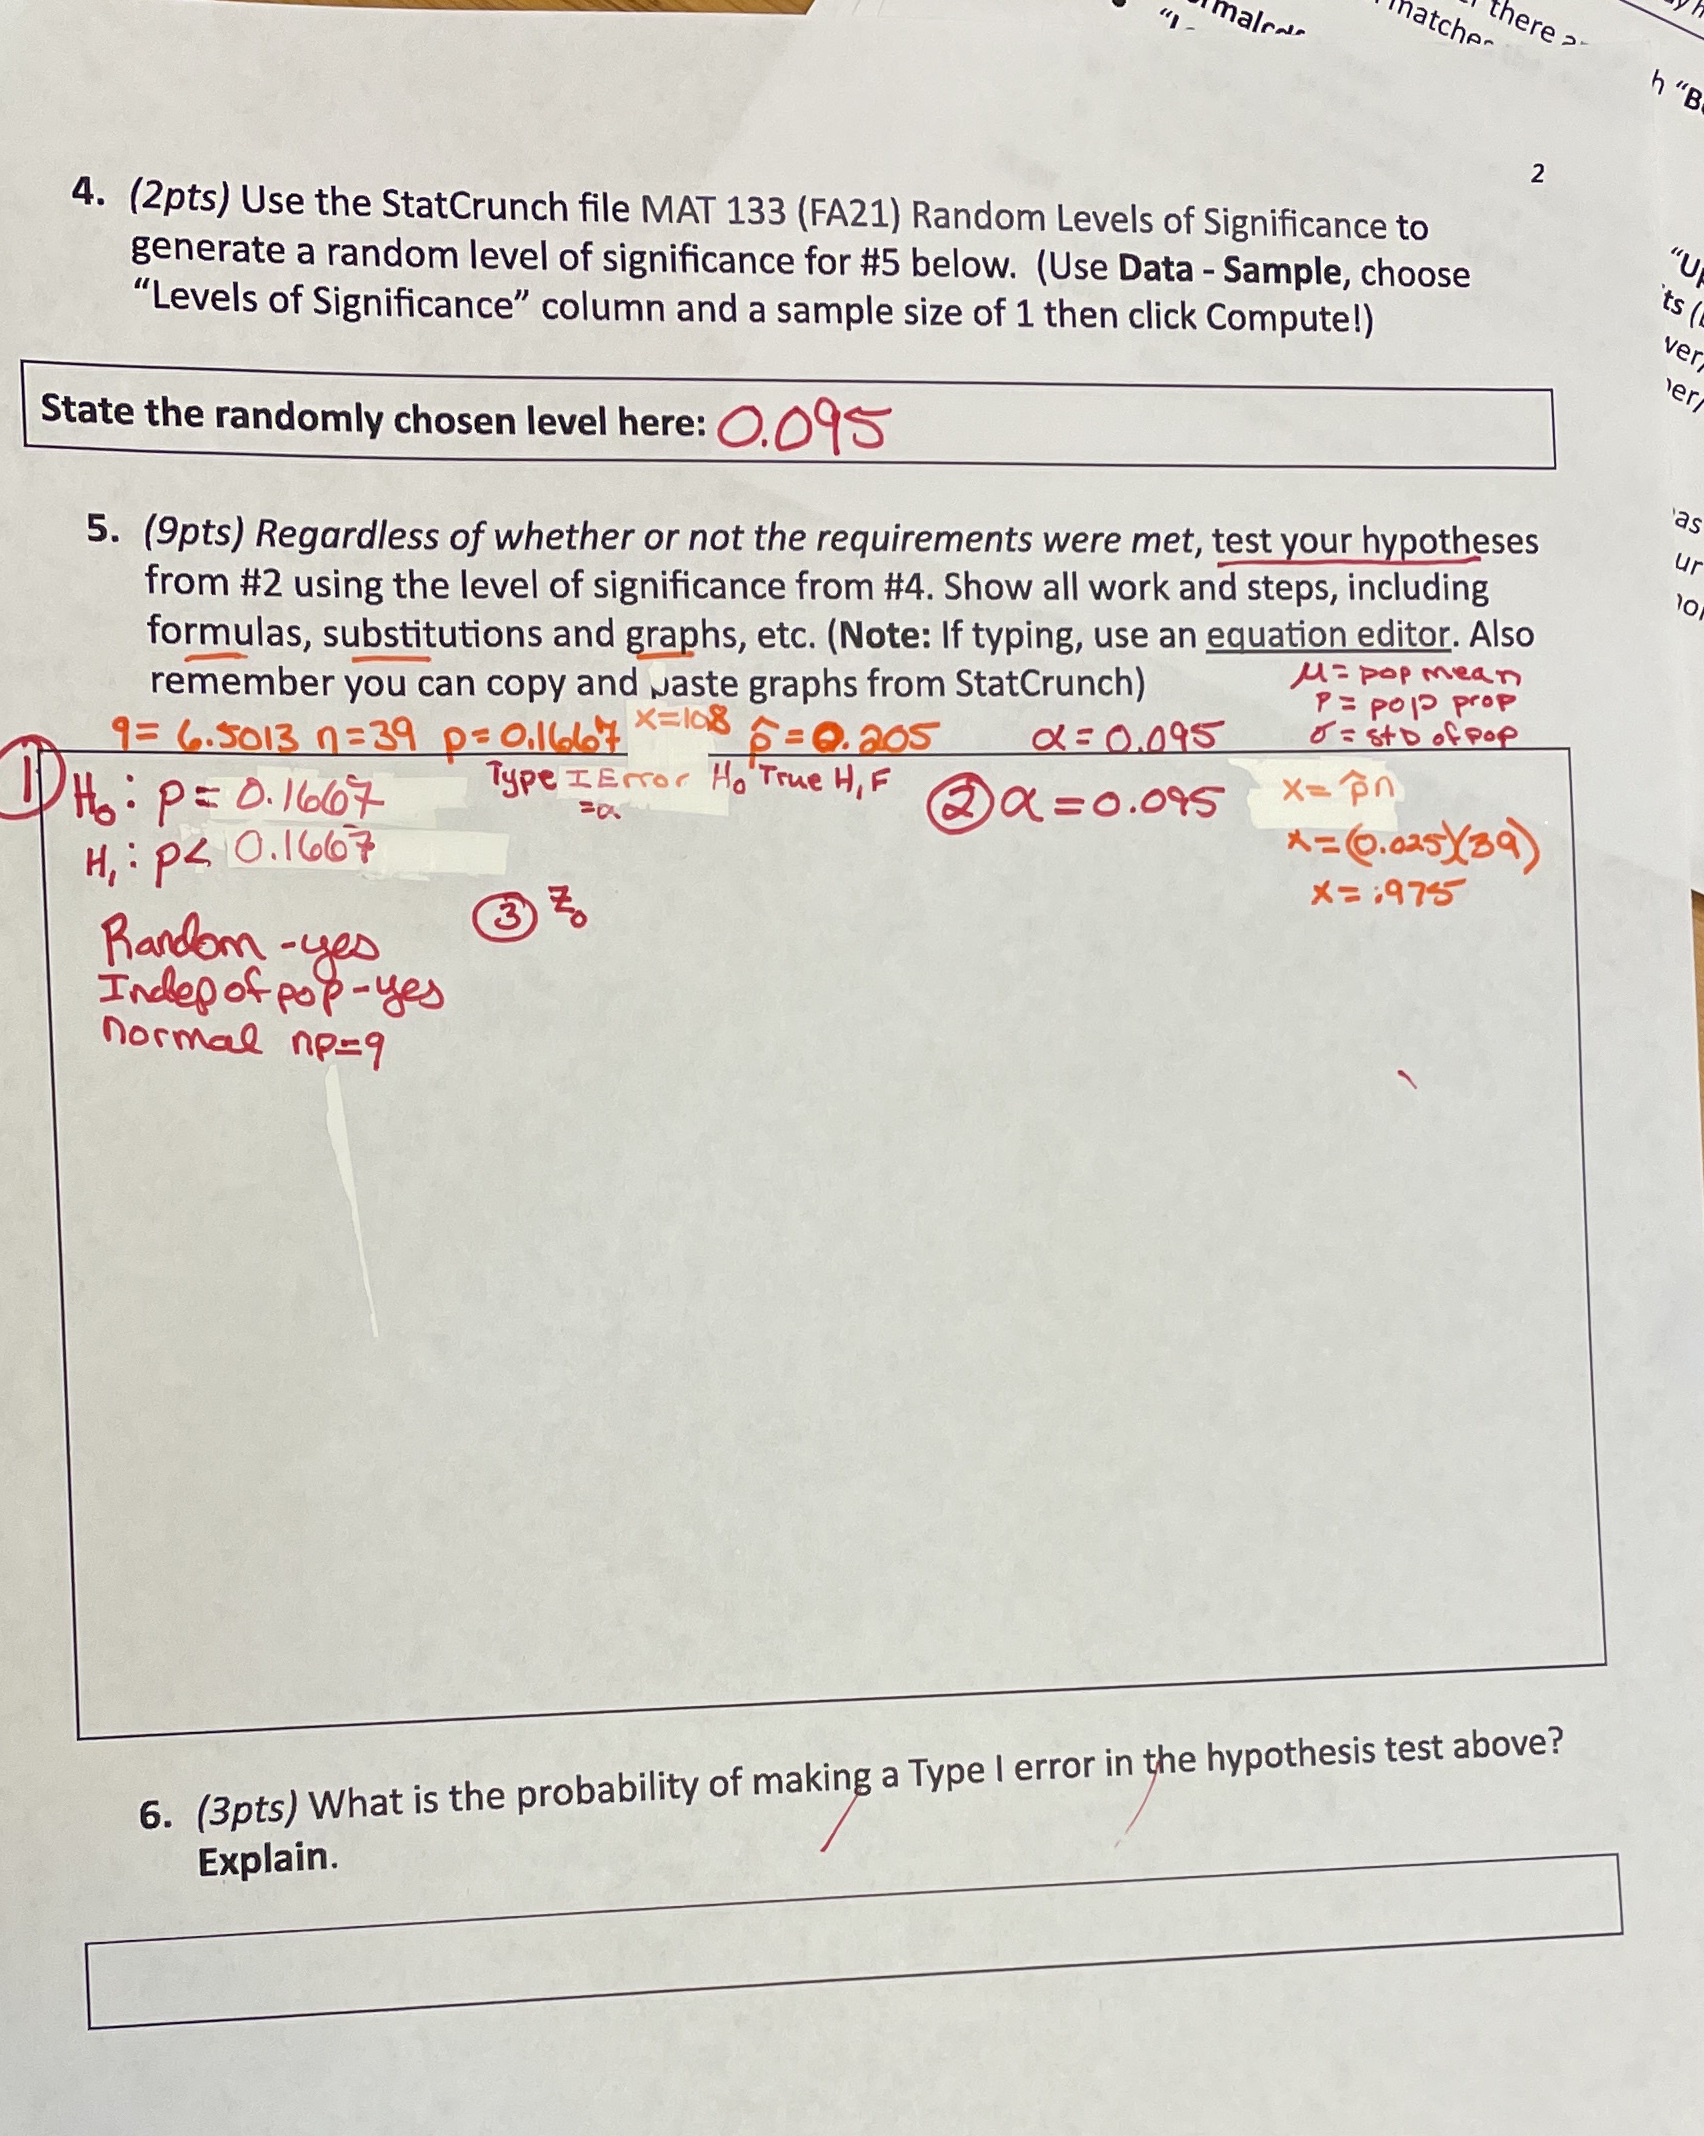 "I-
malcds
matche
there a
h "B
2
4. (2pts) Use the StatCrunch file MAT 133 (FA21) Random Levels of Significance to
generate a random level of significance for #5 below. (Use Data - Sample, choose
"Levels of Significance" column and a sample size of 1 then click Compute!)
State the randomly chosen level here: 0.095
5. (9pts) Regardless of whether or not the requirements were met, test your hypotheses
from #2 using the level of significance from #4. Show all work and steps, including
formulas, substitutions and graphs, etc. (Note: If typing, use an equation editor. Also
remember you can copy and paste graphs from StatCrunch)
μ = pop mean
p = pop prop
σ = std of pop
q = 6.5013 n = 39 p = 0.1667 x = 108 p̂ = 0.205 α = 0.095
① H₀: p = 0.1667
H₁: p < 0.1667
Type I Error H₀ True H₁ F
= α
② α = 0.095
x = p̂n
x = (0.025)(39)
x = .975
③ z₀
Random - yes
Indep of pop - yes
normal np = 9
6. (3pts) What is the probability of making a Type I error in the hypothesis test above?
Explain.
"Up
ts (
ver,
er/
as
ur